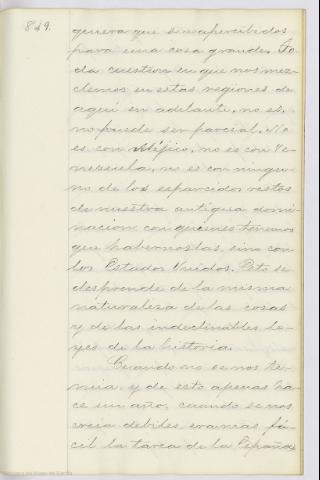 829.
genera que si apercibidos
para una cosa grande. To
da cuestion en que nos mez
clemos en estas regiones de
aquí en adelante, no es,
no puede ser parcial. No
es con Méjico, no es con Ve
nezuela, no es con ningu-
no de los esparcidos restos
de nuestra antigua domi-
nacion con quienes tenemos
que habernoslas, sino con
los Estados Unidos. Esto se
desprende de la misma
naturaleza de las cosas
y de las indeclinables le-
yes de la historia.
Cuando no se nos te-
mia, y de esto apenas ha-
ce un año, cuando se nos
creia debiles, era mas fá-
cil la tarea de la España